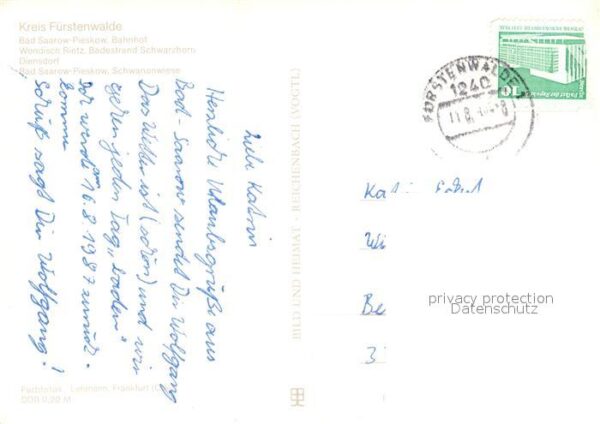 Kreis Fürstenwalde
Bad Saarow-Pieskow, Bahnhof
Wendisch Rietz, Badestrand Schwarzhorn
Diensdorf
Bad Saarow-Pieskow, Schwanenwiese
Liebe Katrin
Herzliche Urlaubsgrüße aus
Bad-Saarow sendet Dir Wolfgang
Das Wetter ist (schön) und wir
gehen jeden Tag „baden“
Wir werden am 16.8.1987 zurück-
kommen
Gruß sagt Dir Wolfgang!
BILD UND HEIMAT · REICHENBACH (VOGTL)
FÜRSTENWALDE
1240
11.8.
10
Kat
Wi
Be
3
privacy protection
Datenschutz
Farbfotos: Lehmann, Frankfurt
DDR 0,20 M